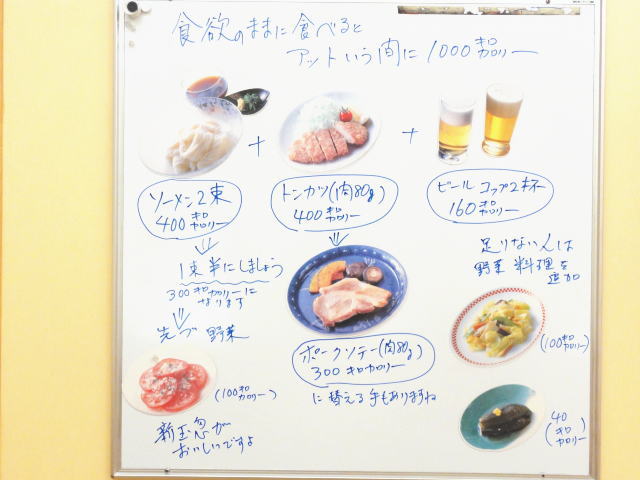 食欲のままに食べると
アットいう間に1000キロカロリー
+
+
ソーメン2束
400キロカロリー
トンカツ(肉80g)
400キロカロリー
ビールコップ2杯
160キロカロリー
1束半にしましょう
300キロカロリーに
なります
先づ野菜
(100キロカロリー)
新玉葱が
おいしいですよ
ポークソテー(肉80g)
300キロカロリー
に替える手もありますね
足りない人は
野菜料理を
追加
(100キロカロリー)
(40キロカロリー)